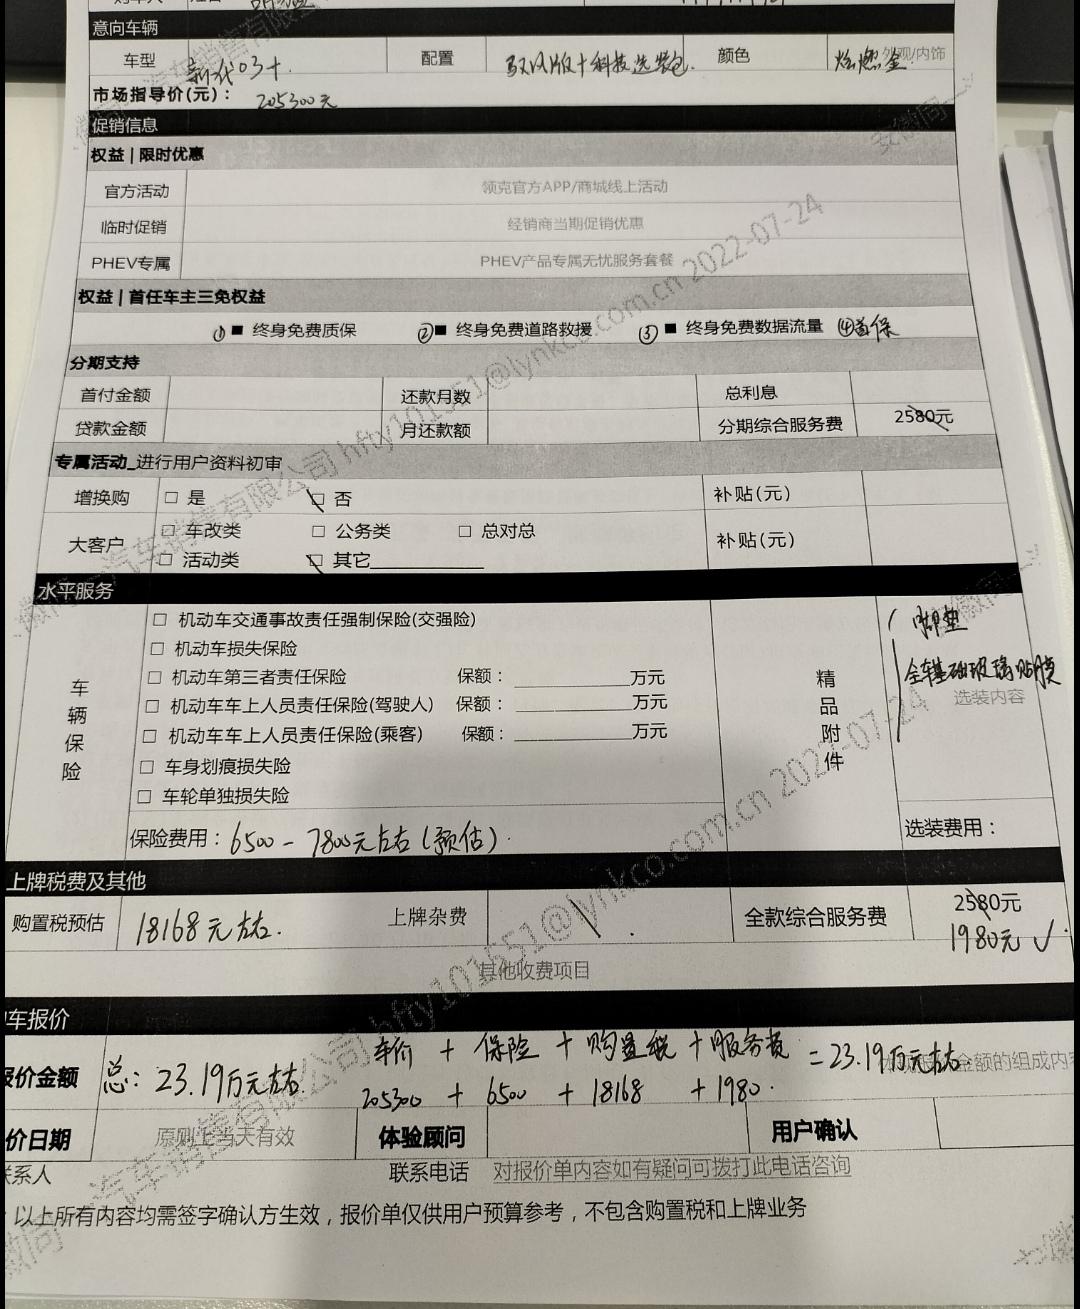 意向车辆
车型 新代03+ 配置 驭风版+科技选装包 颜色 炫燃金 外观/内饰
市场指导价(元)： 205300元
促销信息
权益 | 限时优惠
官方活动 领克官方APP/商城线上活动
临时促销 经销商当期促销优惠
PHEV专属 PHEV产品专属无忧服务套餐
权益 | 首任车主三免权益
① ■ 终身免费质保 ② ■ 终身免费道路救援 ③ ■ 终身免费数据流量 ④首保
分期支持
首付金额 还款月数 总利息
贷款金额 月还款额 分期综合服务费 2580元
专属活动_进行用户资料初审
增换购 □ 是 □ 否 补贴(元)
大客户 □ 车改类 □ 公务类 □ 总对总 补贴(元)
□ 活动类 □ 其它
水平服务
车辆保险
□ 机动车交通事故责任强制保险(交强险)
□ 机动车损失保险
□ 机动车第三者责任保险 保额：________万元
□ 机动车车上人员责任保险(驾驶人) 保额：________万元
□ 机动车车上人员责任保险(乘客) 保额：________万元
□ 车身划痕损失险
□ 车轮单独损失险
保险费用：6500-7800元左右(预估).
精品附件
脚垫
全车基础玻璃贴膜
选装内容
选装费用：
上牌税费及其他
购置税预估 18168元左右. 上牌杂费 全款综合服务费 2580元
1980元 ✓
其他收费项目
车报价
价金额 总：23.19万元左右. 车价 + 保险 + 购置税 + 服务费 =23.19万元左右. 金额的组成内
205300 + 6500 + 18168 + 1980.
价日期 原则上当天有效 体验顾问 用户确认
联系人 联系电话 对报价单内容如有疑问可拨打此电话咨询
以上所有内容均需签字确认方生效，报价单仅供用户预算参考，不包含购置税和上牌业务
汽车销售有限公司 hfty101551@lynkco.com.cn 2022-07-24
汽车销售有限公司 hfty101551@lynkco.com.cn 2022-07-24